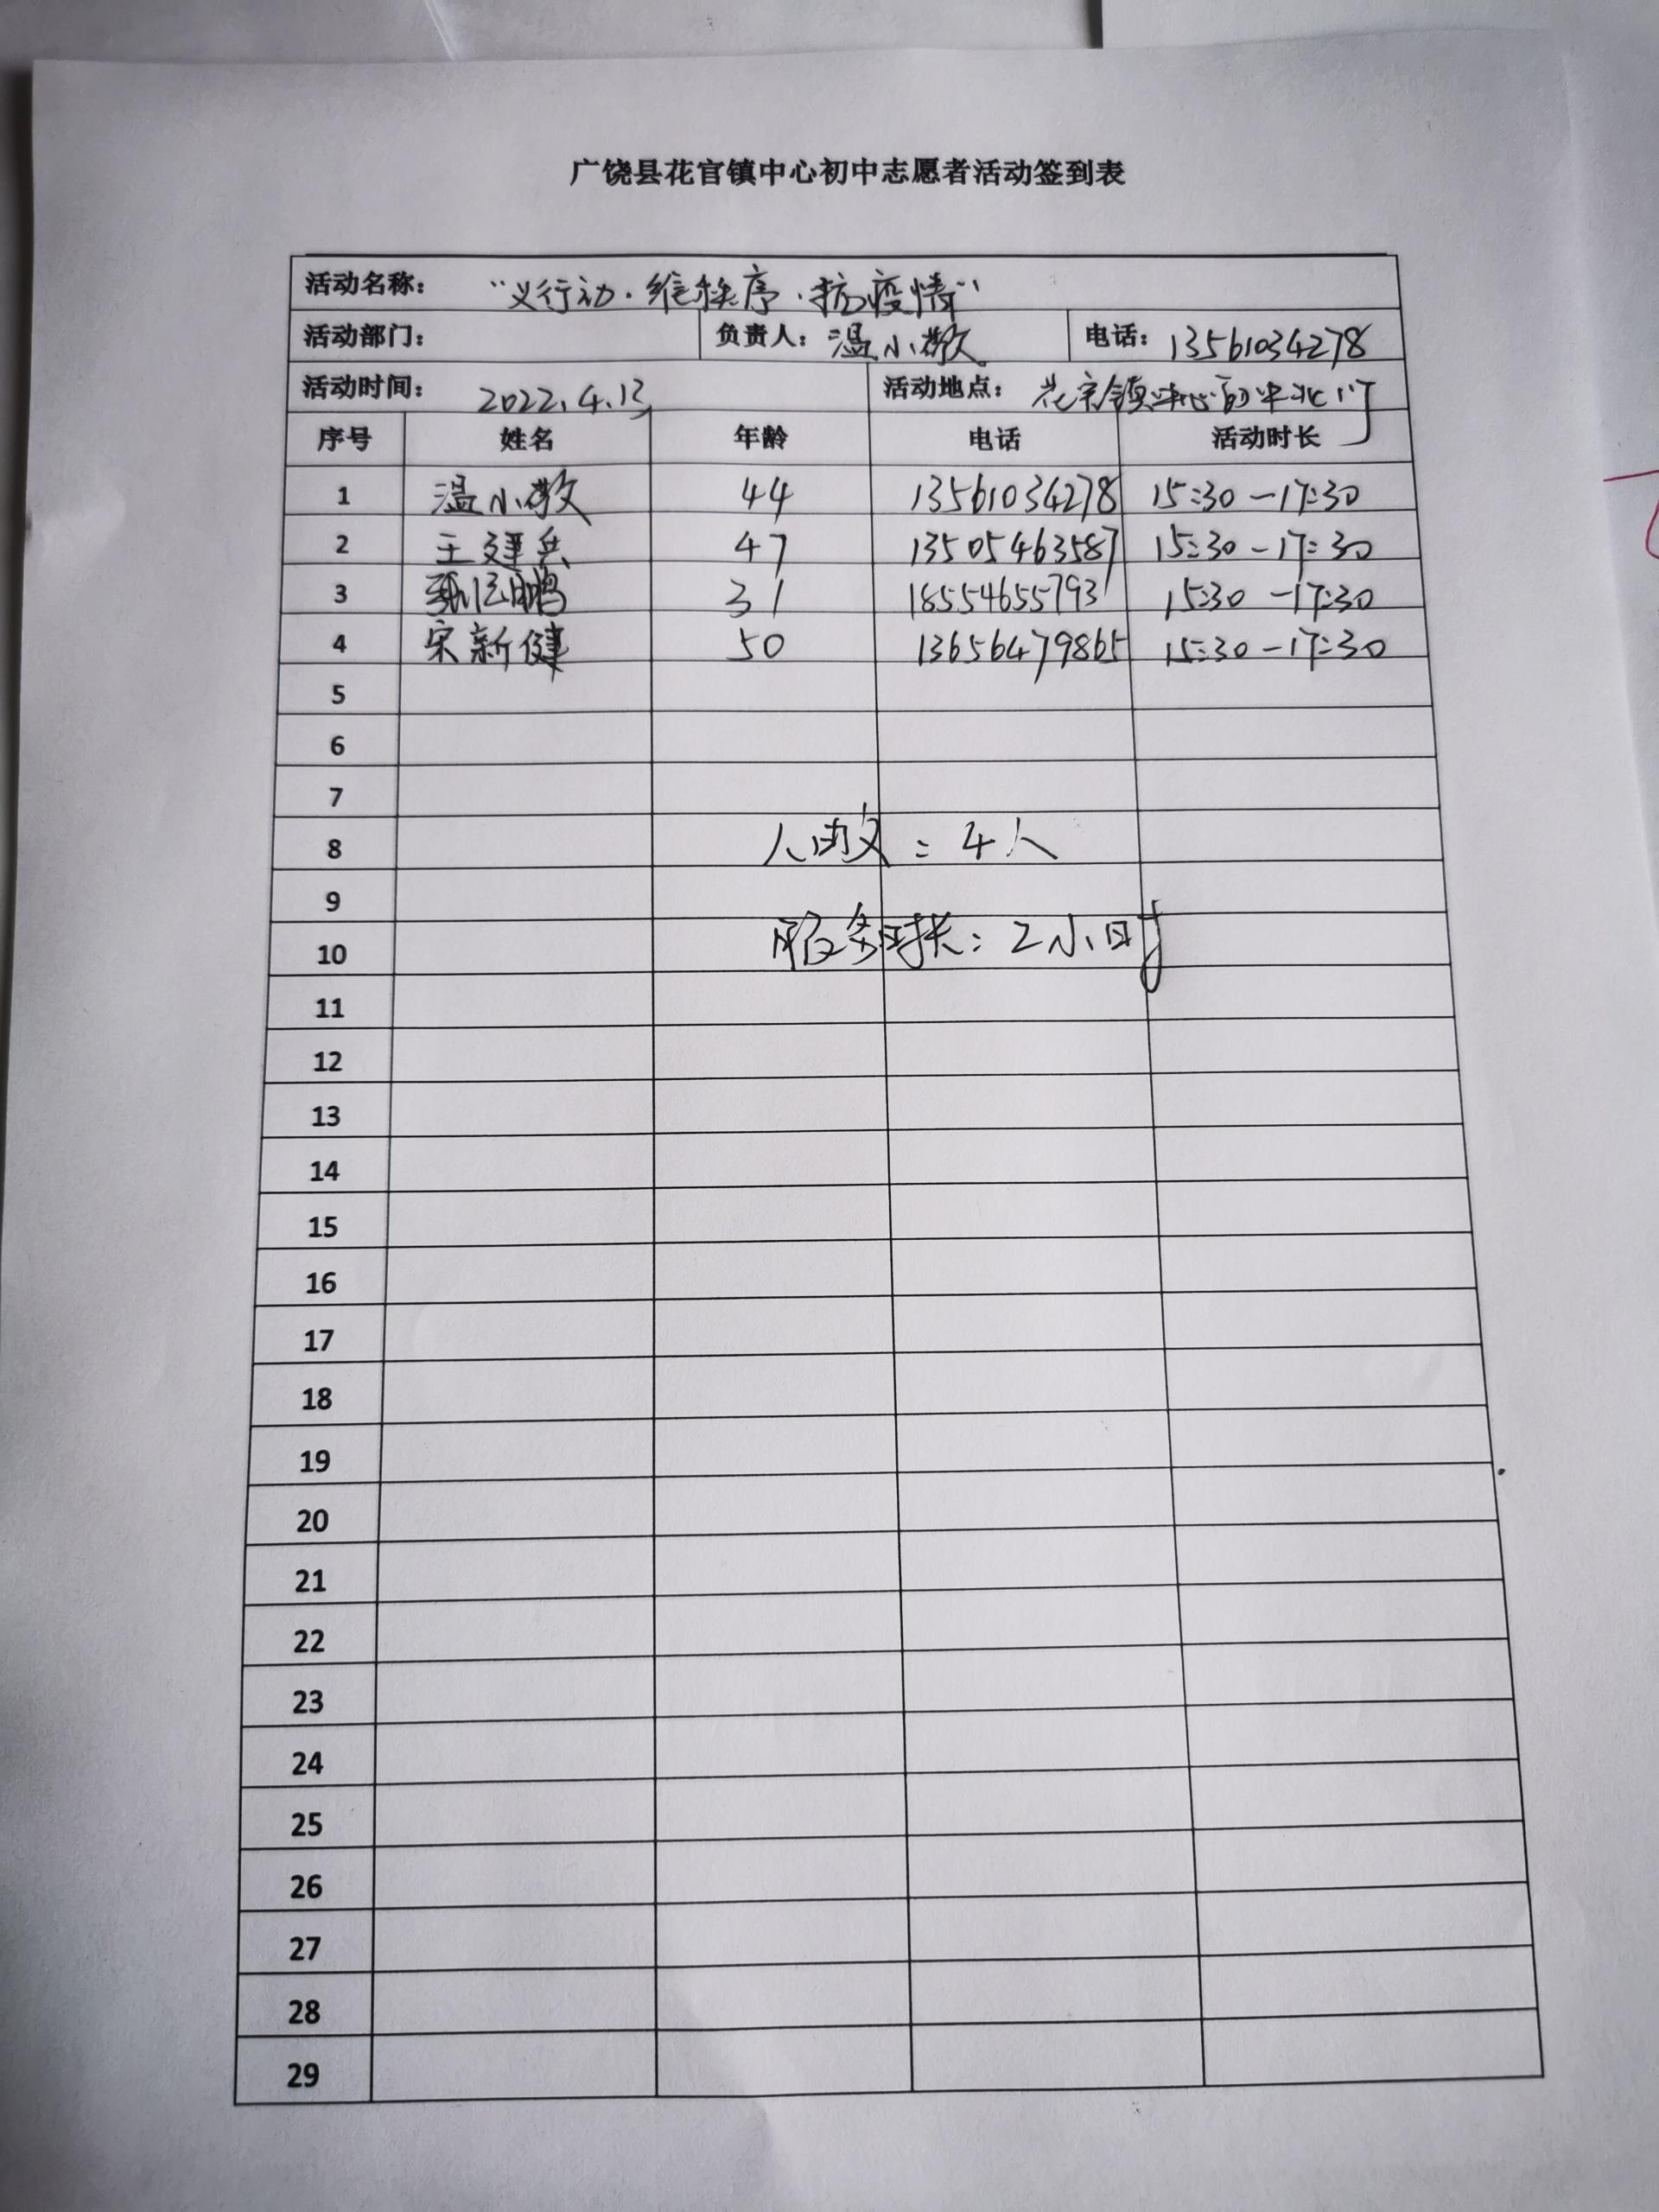 广饶县花官镇中心初中志愿者活动签到表
活动名称: "义行动·维秩序·抗疫情"
活动部门: 负责人: 温小敏 电话: 13561034278
活动时间: 2022.4.13 活动地点: 花官镇中心初中北门
序号 姓名 年龄 电话 活动时长
1 温小敏 44 13561034278 15:30-17:30
2 王建兵 47 13505463587 15:30-17:30
3 31 18554655793 15:30-17:30
4 宋新健 50 13656479865 15:30-17:30
5
6
7
8 人数:4人
9
10 服务时长:2小时
11
12
13
14
15
16
17
18
19
20
21
22
23
24
25
26
27
28
29